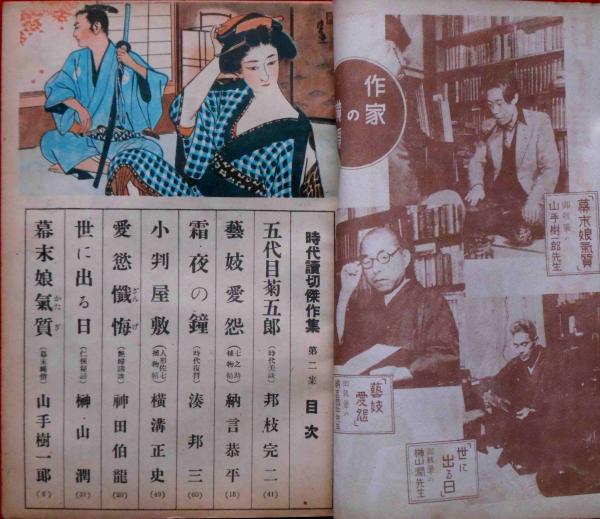 作家の
「幕末娘氣質」
御執筆の
山手樹一郎先生
「藝妓
愛怨」
御執筆の
「世に
出る日」
御執筆の
榊山潤先生
時代讀切傑作集 第二集 目次
五代目菊五郎 (時代美談) 邦枝完二 (41)
藝妓愛怨 (七之助捕物帖) 納言恭平 (15)
霜夜の鐘 (時代復讐) 湊邦三 (60)
小判屋敷 (人形佐七捕物帖) 横溝正史 (49)
愛慾懺悔 (艶婦講談) 神田伯龍 (29)
ざんげ
世に出る日 (仁侠秘話) 榊山潤 (31)
幕末娘氣質 (幕末艶情) 山手樹一郎 (6)
かたぎ